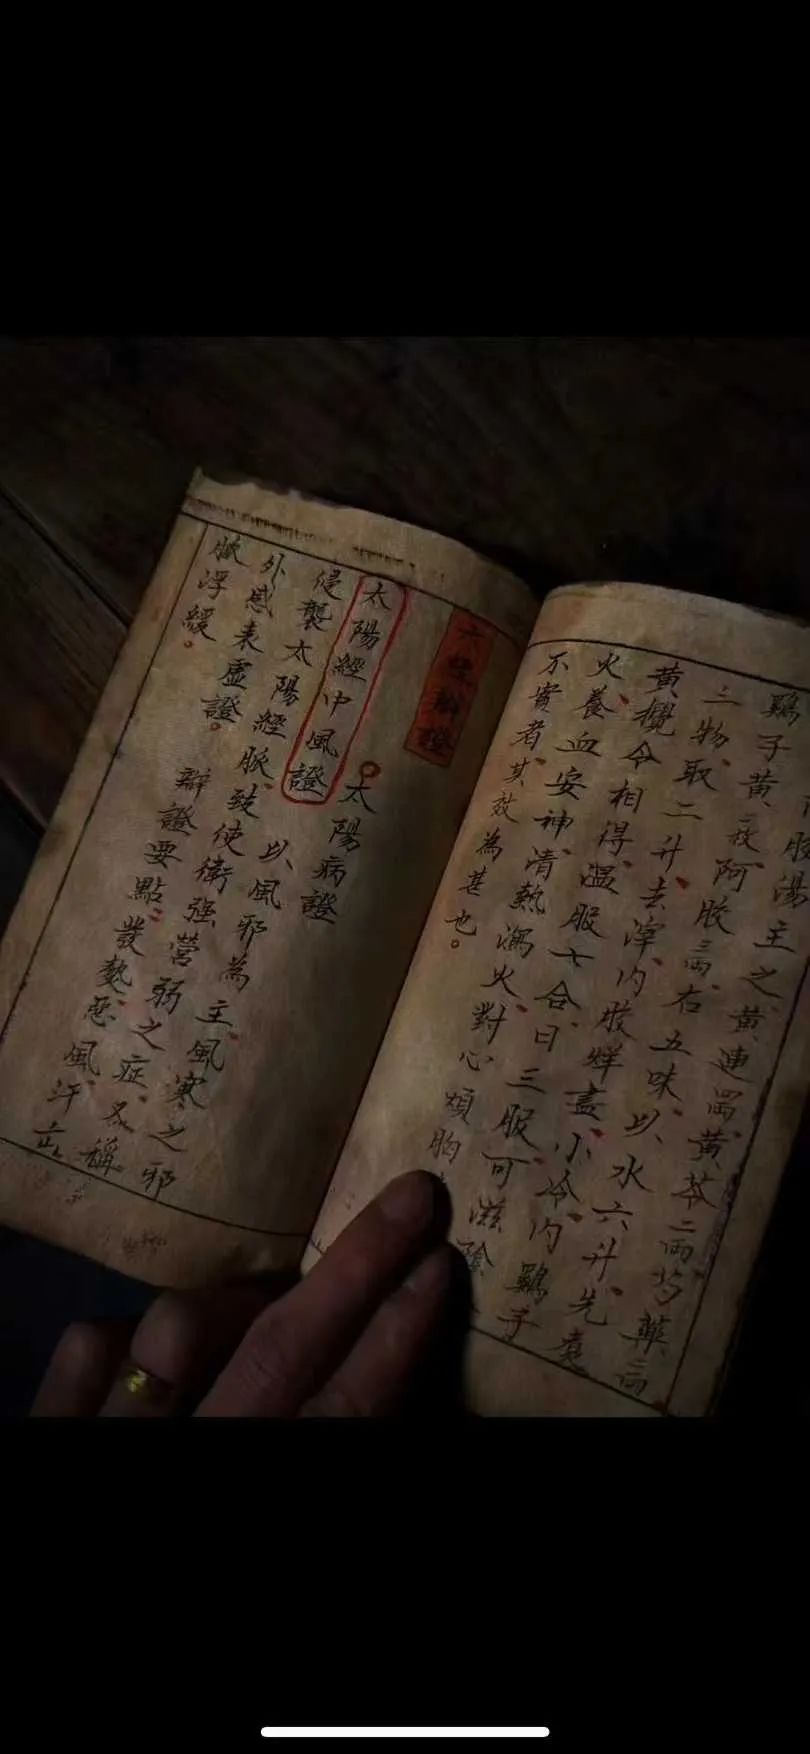 胶湯主之黄連四两黄芩二两芍藥二两
鷄子黄二枚阿胶三两右五味以水六升先煮
二物取二升去滓内胶烊盡小冷内鷄子
黄攪令相得温服七合日三服可滋陰
火養血安神清熱瀉火對心煩胸
不實者其效為甚也。
六經辯證
太陽病證
太陽經中風證 以風邪為主風寒之邪
侵襲太陽經脈致使衛强營弱之症名稱
外感表虛證。 辯證要點發熱惡風汗出
脈浮緩。